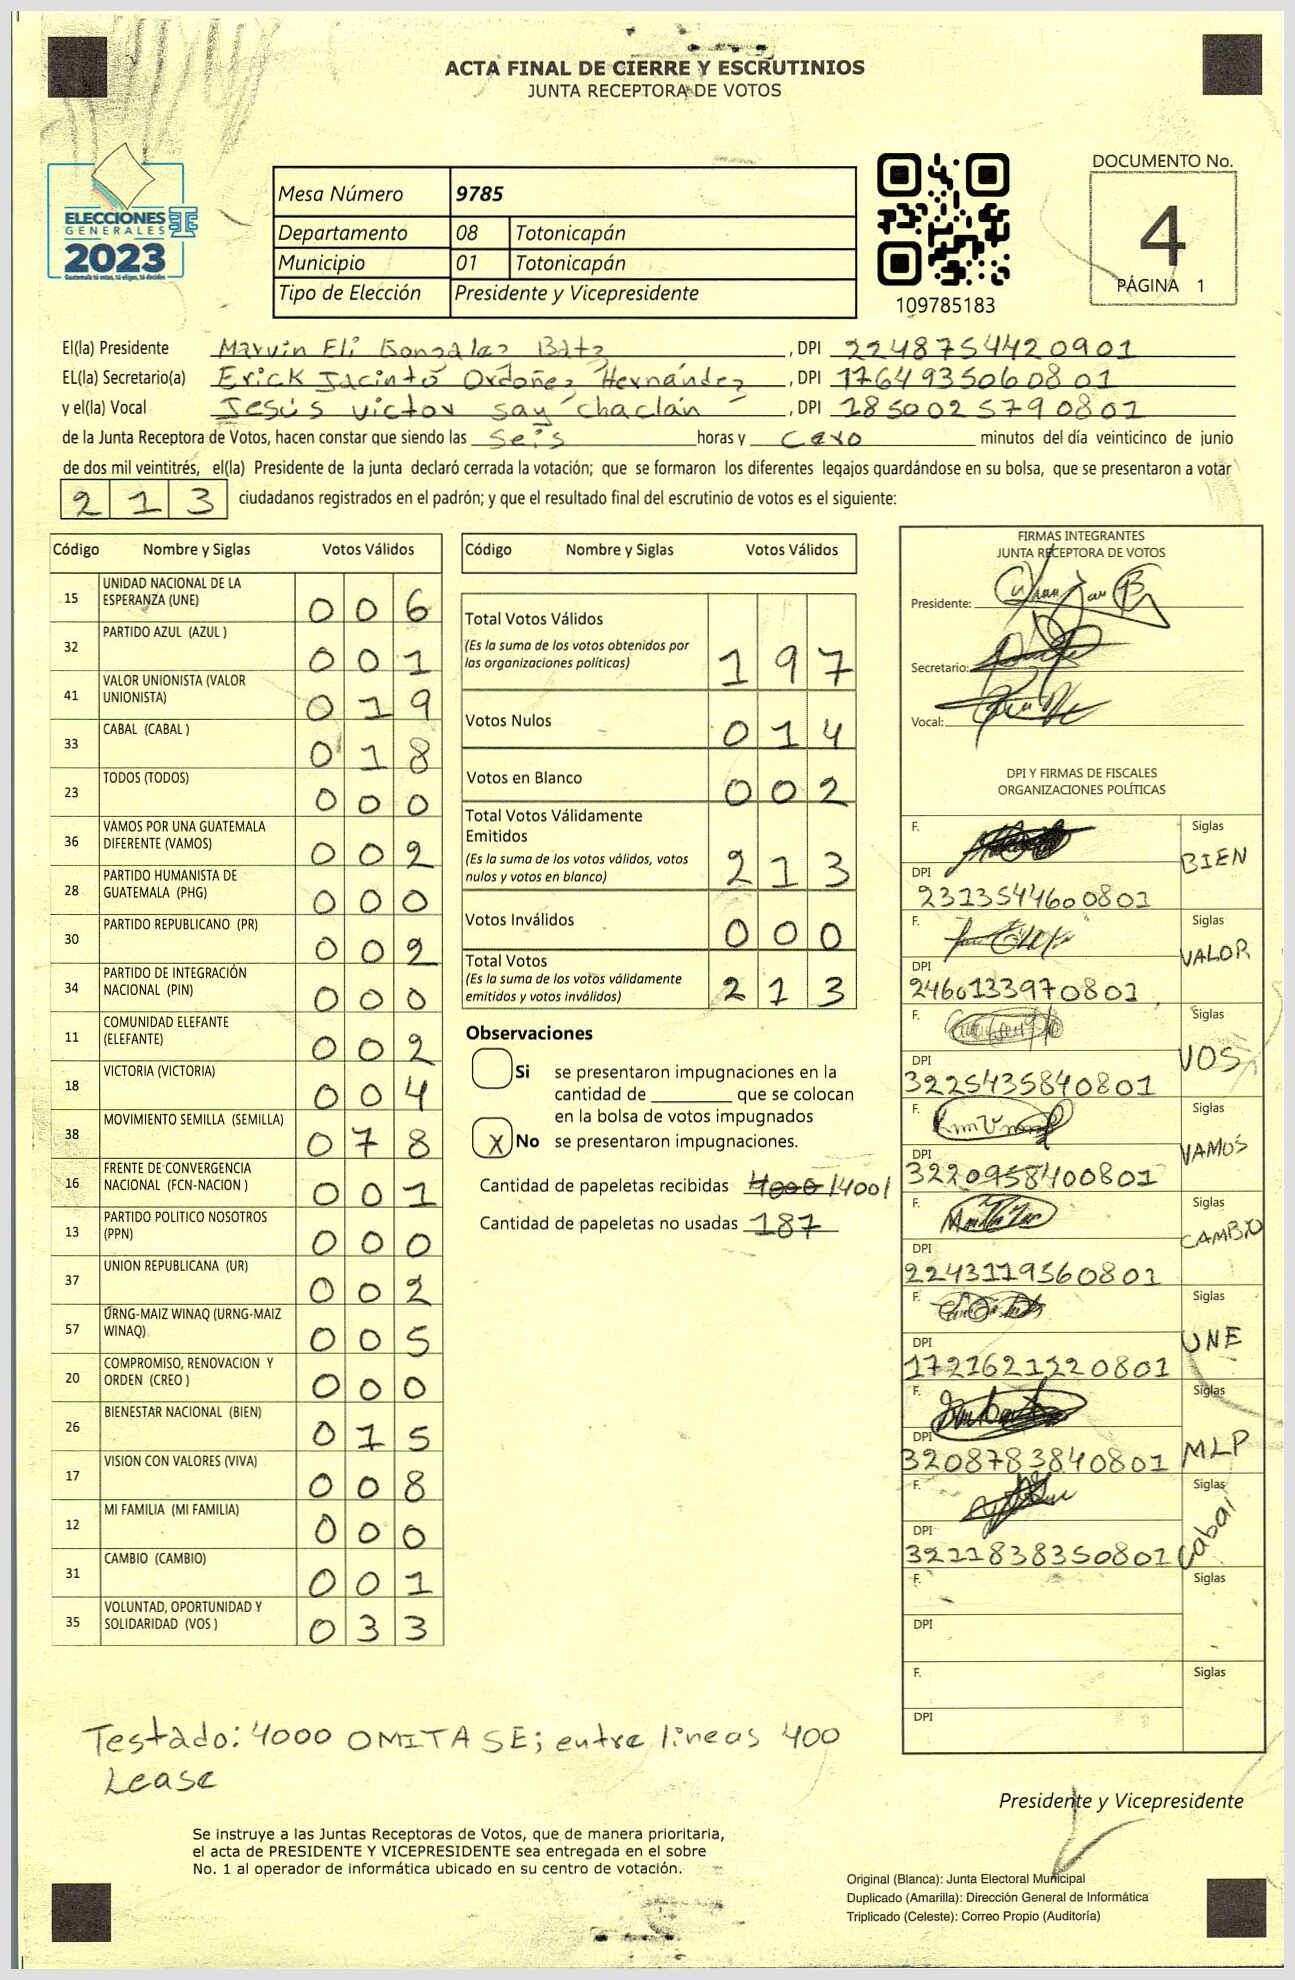 ACTA FINAL DE CIERRE Y ESCRUTINIOS
JUNTA RECEPTORA DE VOTOS
ELECCIONES
GENERALES
2023
Guatemala tú votas, tú eliges, tú decides
Mesa Número 9785
Departamento 08 Totonicapán
Municipio 01 Totonicapán
Tipo de Elección Presidente y Vicepresidente
109785183
DOCUMENTO No.
4
PÁGINA 1
El(la) Presidente Marvin Eli González Batz, DPI 2248754420901
EL(la) Secretario(a) Erick Jacinto Ordoñez Hernández, DPI 1764935060801
y el(la) Vocal Jesús victor say chaclán, DPI 1850025790801
de la Junta Receptora de Votos, hacen constar que siendo las seis horas y cero minutos del día veinticinco de junio
de dos mil veintitrés, el(la) Presidente de la junta declaró cerrada la votación; que se formaron los diferentes legajos guardándose en su bolsa, que se presentaron a votar
213 ciudadanos registrados en el padrón; y que el resultado final del escrutinio de votos es el siguiente:
Código Nombre y Siglas Votos Válidos
15 UNIDAD NACIONAL DE LA ESPERANZA (UNE) 006
32 PARTIDO AZUL (AZUL ) 001
41 VALOR UNIONISTA (VALOR UNIONISTA) 019
33 CABAL (CABAL ) 018
23 TODOS (TODOS) 000
36 VAMOS POR UNA GUATEMALA DIFERENTE (VAMOS) 002
28 PARTIDO HUMANISTA DE GUATEMALA (PHG) 000
30 PARTIDO REPUBLICANO (PR) 002
34 PARTIDO DE INTEGRACIÓN NACIONAL (PIN) 000
11 COMUNIDAD ELEFANTE (ELEFANTE) 002
18 VICTORIA (VICTORIA) 004
38 MOVIMIENTO SEMILLA (SEMILLA) 078
16 FRENTE DE CONVERGENCIA NACIONAL (FCN-NACION ) 001
13 PARTIDO POLITICO NOSOTROS (PPN) 000
37 UNION REPUBLICANA (UR) 002
57 URNG-MAIZ WINAQ (URNG-MAIZ WINAQ) 005
20 COMPROMISO, RENOVACION Y ORDEN (CREO ) 000
26 BIENESTAR NACIONAL (BIEN) 015
17 VISION CON VALORES (VIVA) 008
12 MI FAMILIA (MI FAMILIA) 000
31 CAMBIO (CAMBIO) 001
35 VOLUNTAD, OPORTUNIDAD Y SOLIDARIDAD (VOS ) 033
Código Nombre y Siglas Votos Válidos
Total Votos Válidos
(Es la suma de los votos obtenidos por
las organizaciones políticas) 197
Votos Nulos 014
Votos en Blanco 002
Total Votos Válidamente
Emitidos
(Es la suma de los votos válidos, votos
nulos y votos en blanco) 213
Votos Inválidos 000
Total Votos
(Es la suma de los votos válidamente
emitidos y votos inválidos) 213
Observaciones
Si se presentaron impugnaciones en la
cantidad de ________ que se colocan
en la bolsa de votos impugnados
X No se presentaron impugnaciones.
Cantidad de papeletas recibidas 4000 /400/
Cantidad de papeletas no usadas 187
FIRMAS INTEGRANTES
JUNTA RECEPTORA DE VOTOS
Presidente:
Secretario:
Vocal:
DPI Y FIRMAS DE FISCALES
ORGANIZACIONES POLÍTICAS
F. Siglas
BIEN
DPI
2313544600801
F. Siglas
VALOR
DPI
2460133970801
F. Siglas
VOS
DPI
3225435840801
F. Siglas
VAMOS
DPI
3220958400801
F. Siglas
CAMBIO
DPI
2243119560801
F. Siglas
UNE
DPI
1721621220801
F. Siglas
MLP
DPI
3208783840801
F. Siglas
Cabal
DPI
3211838350801
F. Siglas
DPI
F. Siglas
DPI
Testado: 4000 OMITASE; entre lineas 400
Lease
Presidente y Vicepresidente
Se instruye a las Juntas Receptoras de Votos, que de manera prioritaria,
el acta de PRESIDENTE Y VICEPRESIDENTE sea entregada en el sobre
No. 1 al operador de informática ubicado en su centro de votación.
Original (Blanca): Junta Electoral Municipal
Duplicado (Amarilla): Dirección General de Informática
Triplicado (Celeste): Correo Propio (Auditoría)